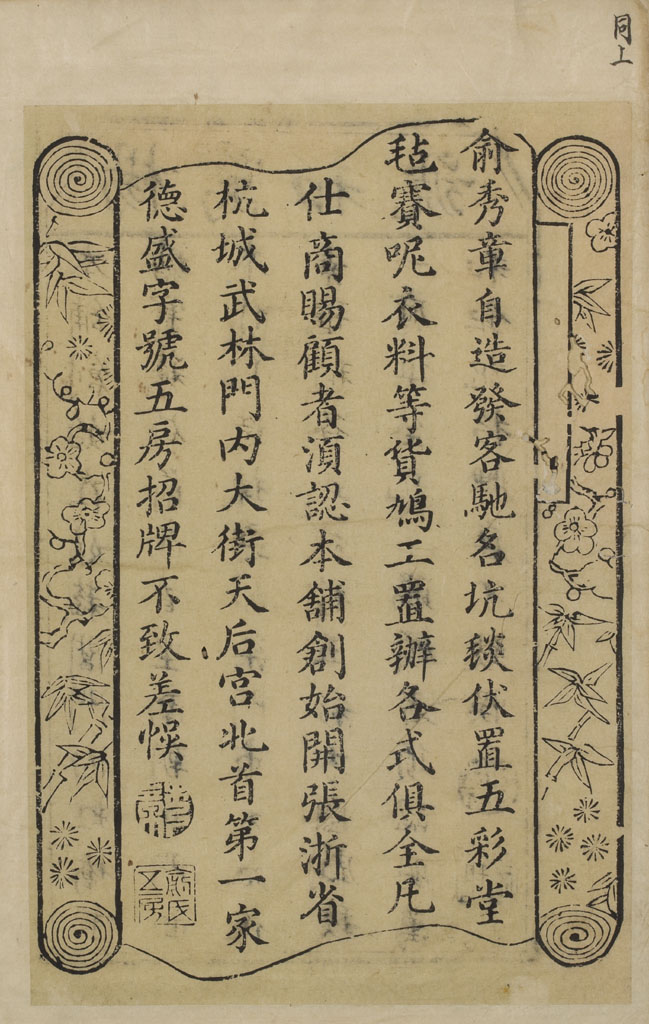 同上
俞秀章自造發客馳名坑毯伏置五彩堂
毡賽呢衣料等貨鳩工置辦各式俱全凡
仕商賜顧者湏認本舖創始開張浙省
杭城武林門内大街天后宮北首第一家
德盛字號五房招牌不致差悞
俞氏五房